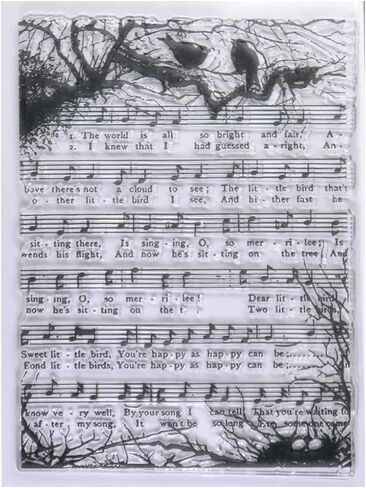 1. The world is all so bright and fair, A-
2. I knew that I had guessed a-right, An-
bove there's not a cloud to see; The lit-tle bird that's
o-ther lit-tle bird I see, And hi-ther fast he
sit-ting there, Is sing-ing, O, so mer-ri-lee; Is
wends his flight, And now he's sit-ting on the tree, And
sing-ing, O, so mer-ri-lee! Dear lit-tle bird,
now he's sit-ting on the t. Two lit-tle birds,
Sweet lit-tle bird, You're hap-py as hap-py can be;......
Fond lit-tle birds, You're hap-py as hap-py can be;......
know ve-ry well, By your song I can tell, That you're waiting to
af-ter my song, It won't be so long Ere some one come